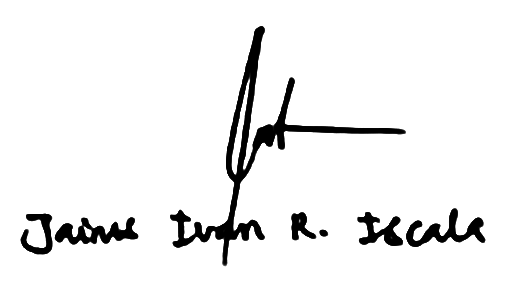 Jaime Ivan R. Iscala